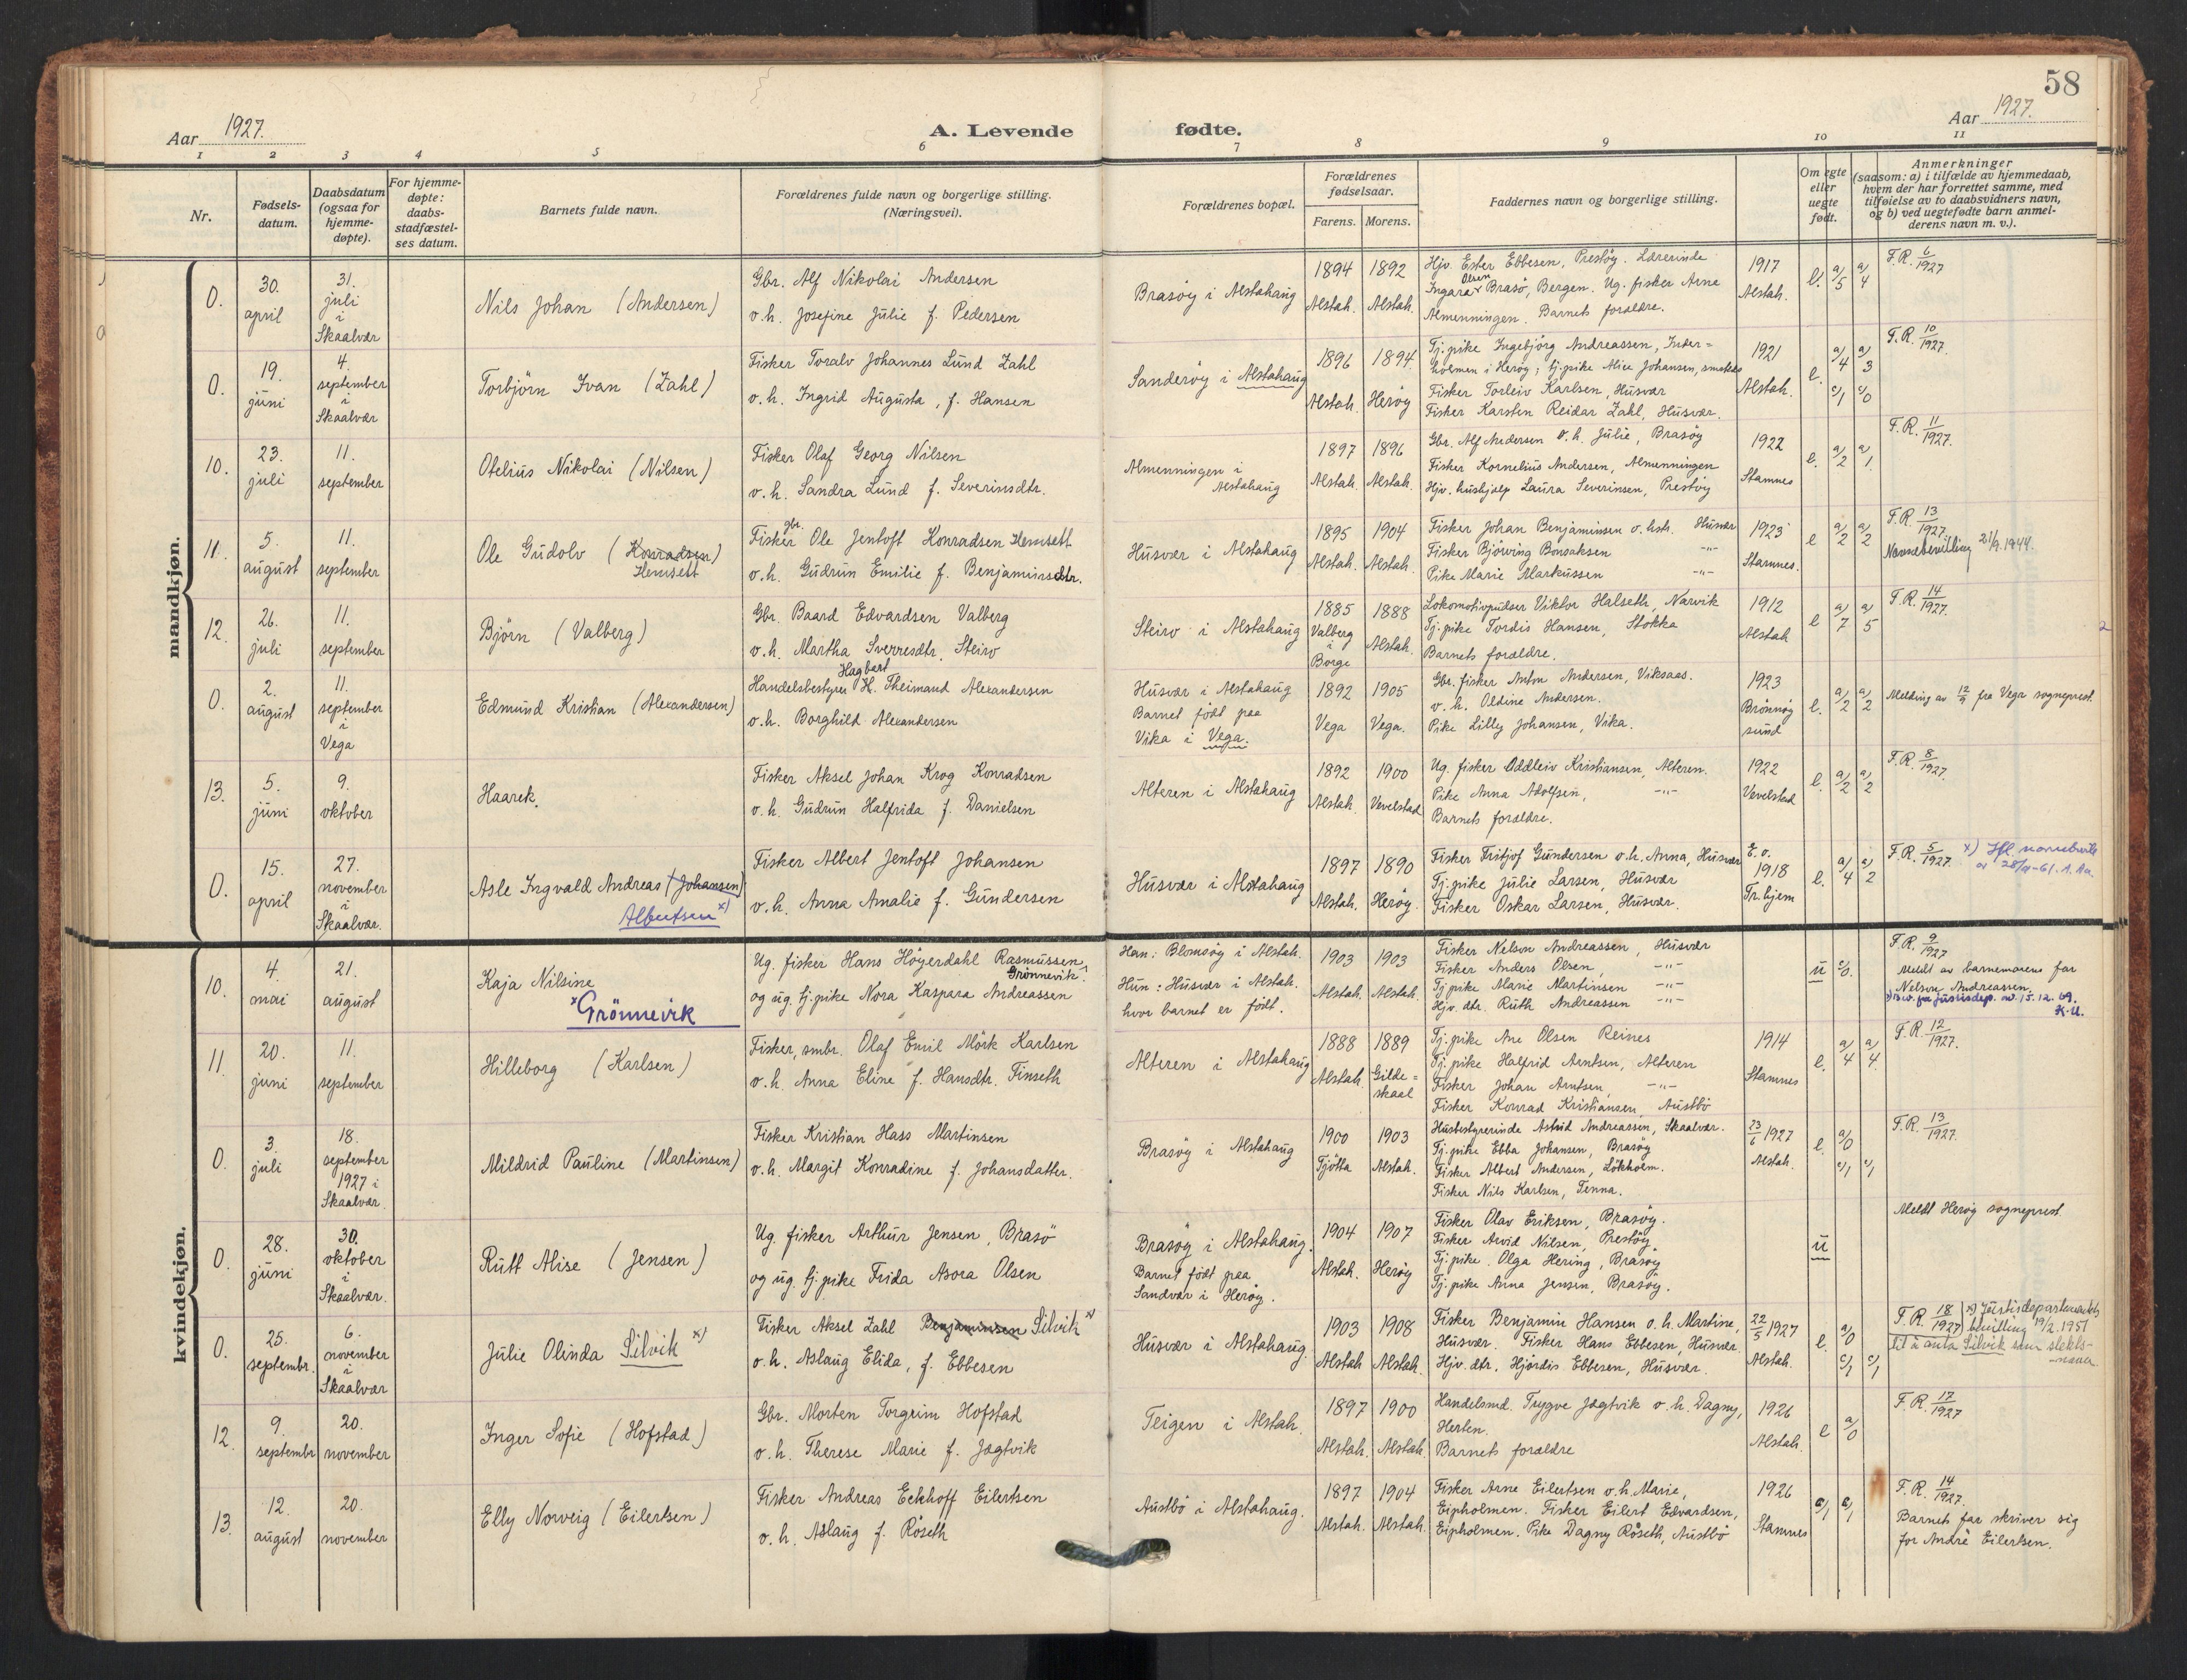 58
Aar 1927.
A. Levende fødte.
Aar 1927.
1 2 3 4 5 6 7 8 9 10 11
Nr.
Fødsels-
datum.
Daabsdatum
(ogsaa for
hjemme-
døpte).
For hjemme-
døpte:
daabs-
stadfæstel-
ses datum.
Barnets fulde navn.
Forældrenes fulde navn og borgerlige stilling.
(Næringsvei).
Forældrenes bopæl.
Forældrenes
fødselsaar.
Farens. Morens.
Faddernes navn og borgerlige stilling.
Om egte
eller
uegte
født.
Anmerkninger
(saasom: a) i tilfælde av hjemmedaab,
hvem der har forrettet samme, med
tilføielse av to daabsvidners navn,
og b) ved uegtefødte barn anmel-
derens navn m. v.).
mandkjøn.
0.
30.
april
31.
juli
i
Skaalvær
Nils Johan (Andersen)
Gbr. Alf Nikolai Andersen
o.h. Josefine Julie f. Pedersen
Brasöy i Alstahaug
1894 1892
Alstah. Alstah.
Hjv. Ester Ebbesen, Prestöy. Lærerinde
Olsen
Ingara Brasö, Bergen. Ug. fisker Arne
Almenningen. Barnets forældre.
1917
Alstah.
e. a/5 a/4
F.R. 6/1927
0.
19.
juni
4.
september
i
Skaalvær
Torbjörn Ivan (Zahl)
Fisker Toralv Johannes Lund Zahl
o.h. Ingrid Augusta, f. Hansen
Sanderöy i Alstahaug
1896 1894
Alstah. Heröy
Tj.pike Ingebjörg Andreassen, Inder=
holmen i Heröy; tj.pike Alice Johansen,
Fisker Torleiv Karlsen, Husvær
Fisker Karsten Reidar Zahl, Husvær.
1921
Alstah.
e. a/4 a/3
c/1 c/0
F.R. 10/1927.
10.
23.
juli
11.
september
Otelius Nikolai (Nilsen)
Fisker Olaf Georg Nilsen
o.h. Sandra Lund f. Severinsdtr.
Almenningen i
Alstahaug
1897 1896
Alstah. Alstah.
Gbr. Alf Andersen o.h. Julie, Brasöy
Fisker Kornelius Andersen, Almenningen
Hjv. hushjælp Laura Severinsen, Prestöy
1922
Stamnes
e. a/2 a/1
F.R. 11/1927.
11.
5.
august
11.
september
Ole Gudolv (Konradsen)
Hemsett
gbr.
Fisker Ole Jentoft Konradsen Hemsett
o.h. Gudrun Emilie f. Benjaminsdtr.
Husvær i Alstahaug
1895 1904
Alstah. Alstah.
Fisker Johan Benjaminsen o. hst. Husvær
Fisker Björving Bonsaksen -"-
Pike Marie Markussen -"-
1923
Stamnes.
e a/2 a/2
F.R. 13/1927.
Navnebevilling 21/9.1944.
12.
26.
juli
11.
september
Björn (Valberg)
Gbr. Baard Edvardsen Valberg
o.h. Martha Sverresdtr. Steiro
Steiro i Alstahaug
1885 1888
Valberg
i
Borge
Alstah.
Lokomotivpudser Viktor Halseth, Narvik
Tj.pike Tordis Hansen, Stokka
Barnets forældre.
1912
Alstah
e a/7 a/5
F.R. 14/1927.
0.
2.
august
11.
september
i
Vega
Edmund Kristian (Alexandersen)
Hagbart
Handelsbestyrer H. Theimand Alexandersen
o.h. Borghild Alexandersen
Husvær i Alstahaug
Barnet födt paa
Vika i Vega.
1892 1905
Vega Vega.
Gbr. fisker Anton Andersen, Viksaas.
o.h. Oldine Andersen.
Pike Lilly Johansen, Vika.
1923
Brönnöy
sund
e. a/2 a/2
Melding av 12/9 fra Vega sogneprest.
13.
5.
juni
9.
oktober
Haarek.
Fisker Aksel Johan Krog Konradsen
o.h. Gudrun Halfrida f. Danielsen
Alteren i Alstahaug
1892 1900
Alstah. Vevelstad
Ug. fisker Oddleiv Kristiansen, Alteren.
Pike Anna Adolfsen, -"-
Barnets forældre.
1922
Vevelstad
e. a/2 a/2
F.R. 8/1927.
0.
15.
april
27.
november
i
Skaalvær.
Asle Ingvald Andreas (Johansen)
Albertsen x)
Fisker Albert Jentoft Johansen
o.h. Anna Amalie f. Gundersen
Husvær i Alstahaug
1897 1890
Alstah. Heröy.
Fisker Fritjof Gundersen o.h. Anna, Husvær
Tj.pike Julie Larsen, Husvær
Fisker Oskar Larsen, Husvær.
1918
Tr.hjem
e. a/4 a/2
F.R. 5/1927.
kvindekjøn.
10.
4.
mai
21.
august
Kaja Nilsine
x Grönnevik
Ug. fisker Hans Höyerdahl Rasmussen
Grönnevik.
og ug. tj.pike Nora Kaspara Andreassen
Han: Blomsöy i Alstah.
Hun: Husvær i Alstah.
hvor barnet er födt.
1903 1903
Alstah. Alstah.
Fisker Nelson Andreassen, Husvær
Fisker Anders Olsen, -"-
Tj.pike Marie Martinsen -"-
Hjv. dtr. Ruth Andreassen -"-
u c/0.
F.R. 9/1927
Meldt av barnemorens far
Nelson Andreassen.
x) Bev. fra Justisdep. av. 15.12.69.
K.U.
11.
20.
juni
11.
september
Hilleborg (Karlsen)
Fisker, smbr. Olaf Emil Mörk Karlsen
o.h. Anna Eline f. Hansdtr. Finseth
Alteren i Alstahaug
1888 1889
Alstah. Gilde=
skaal
Tj.pike Ane Olsen Reines
Tj.pike Halfrid Arntsen, Alteren
Fisker Johan Arntsen, -"-
Fisker Konrad Kristiansen, Austbö
1914
Stamnes
e. a/4 a/4
F.R. 12/1927.
0.
3.
juli
18.
september
1927 i
Skaalvær.
Mildrid Pauline (Martinsen)
Fisker Kristian Hass Martinsen
o.h. Margit Konradine f. Johansdatter.
Brasöy i Alstahaug
1900 1903
Tjötta Alstah.
Husbestyrerinde Astrid Andreassen, Skaalvær.
Tj.pike Ebba Johansen, Brasöy
Fisker Albert Andersen, Lökholm.
Fisker Nils Karlsen, Tenna.
23/6 1927
Alstah.
e. a/0
c/1 c/1
F.R. 13/1927.
0.
28.
juni
30.
oktober
i
Skaalvær.
Rutt Alise (Jensen)
Ug. fisker Arthur Jensen, Brasö
og ug. tj.pike Frida Asora Olsen
Brasöy i Alstahaug.
Barnet födt paa
Sandvær i Heröy.
1904 1907
Alstah. Heröy
Fisker Olav Eriksen, Brasöy.
Fisker Arvid Nilsen, Prestöy
Tj.pike Olga Hering, Brasöy
Tj.pike Anna Jensen, Brasöy.
u
Meldt Heröy sogneprest.
0.
25.
septembr.
6.
november
i
Skaalvær
Julie Olinda Silvik x)
Fisker Aksel Zahl Benjaminsen Silvik x)
o.h. Aslaug Elida, f. Ebbesen
Husvær i Alstahaug.
1903 1908
Alstah Alstah.
Fisker Benjamin Hansen o.h. Martine,
Husvær. Fisker Hans Ebbesen, Husvær.
Hjv. dtr. Hjördis Ebbesen, Husvær.
22/5 1927
Alstah.
e. a/0
c/1 c/1
F.R. 18/1927
x) Justisdepartementets
bevilling 19/2.1951
til å anta Silvik som slekts-
-navn
12.
9.
septembr
20.
november
Inger Sofie (Hofstad)
Gbr. Morten Torgrim Hofstad
o.h. Therese Marie f. Jægtvik
Teigen i Alstah.
1897 1900
Alstah. Alstah.
Handelsmd. Trygve Jægtvik o.h. Dagny,
Herten.
Barnets forældre
1926
Alstah.
e a/0
F.R. 17/1927
13.
12.
august
20.
november
Elly Norveig (Eilertsen)
Fisker Andreas Eckhoff Eilertsen
o.h. Aslaug f. Röseth
Austbö i Alstahaug.
1897 1904
Alstah. Alstah.
Fisker Arne Eilertsen o.h. Marie,
Eipholmen. Fisker Eilert Edvardsen,
Eipholmen. Pike Dagny Röseth, Austbö
1926
Stamnes
F.R. 14/1927.
Barnets far skriver sig
for André Eilertsen.